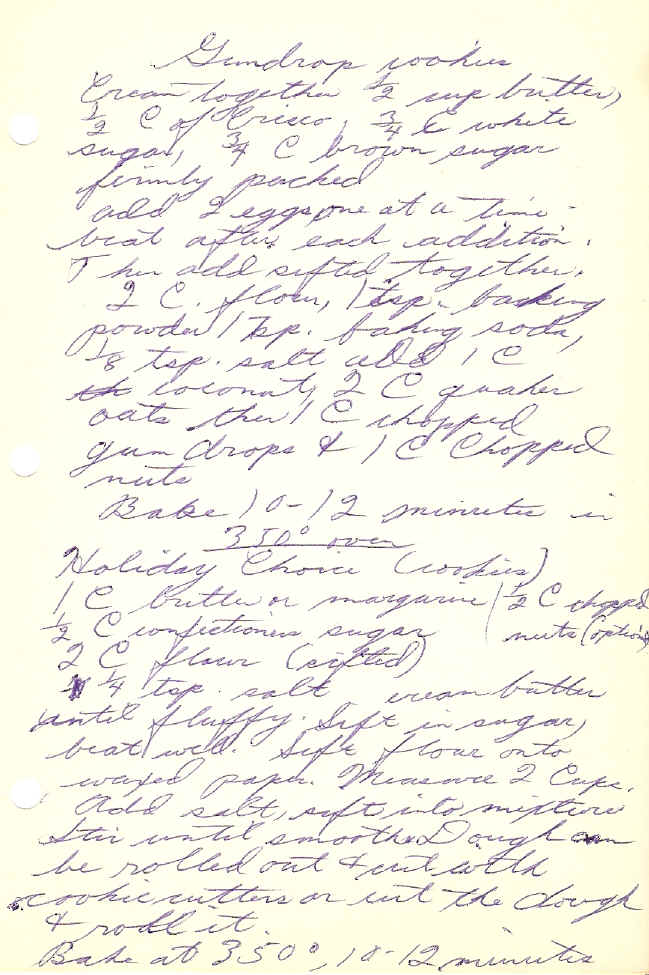 Gumdrop cookies
Cream together 1/2 cup butter,
1/2 C of Crisco, 3/4 C white
sugar, 3/4 C brown sugar
firmly packed
add 2 eggs, one at a time -
beat after each addition.
Then add sifted together.
2 C. flour, 1 tsp. baking
powder 1 tsp. baking soda,
1/8 tsp. salt add 1 C
coconut, 2 C quaker
oats then 1 C chopped
gum drops & 1 C Chopped
nuts
Bake 10-12 minutes in
350° oven
Holiday Choice (cookies)
1 C butter or margarine | 1/2 C chopped
1/2 C confectioners sugar | nuts (optional)
2 C flour (sifted)
1/4 tsp. salt cream butter
until fluffy. Sift in sugar,
beat well. Sift flour onto
waxed paper. Measure 2 Cups.
Add salt, sift into mixture
Stir until smooth. Dough can
be rolled out & cut with
cookie cutters or cut the dough
& roll it.
Bake at 350°, 10-12 minutes